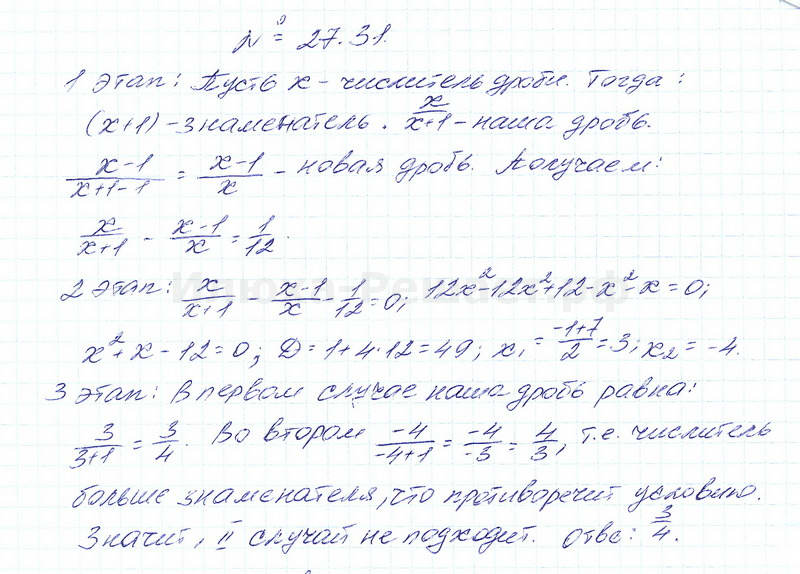 № 27.31.
1 этап: Пусть x – числитель дроби. Тогда:
(x+1) – знаменатель. x/(x+1) – наша дробь.
(x-1)/(x+1-1) = (x-1)/x – новая дробь. Получаем:
x/(x+1) - (x-1)/x = 1/12.
2 этап: x/(x+1) - (x-1)/x - 1/12 = 0; 12x²-12x²+12-x²-x=0;
x²+x-12=0; D=1+4·12=49; x₁=(-1+7)/2=3; x₂=-4.
3 этап: В первом случае наша дробь равна:
3/(3+1) = 3/4. Во втором -4/(-4+1) = -4/-3 = 4/3, т.е. числитель
больше знаменателя, что противоречит условию.
Значит, II случай не подходит. Ответ: 3/4.